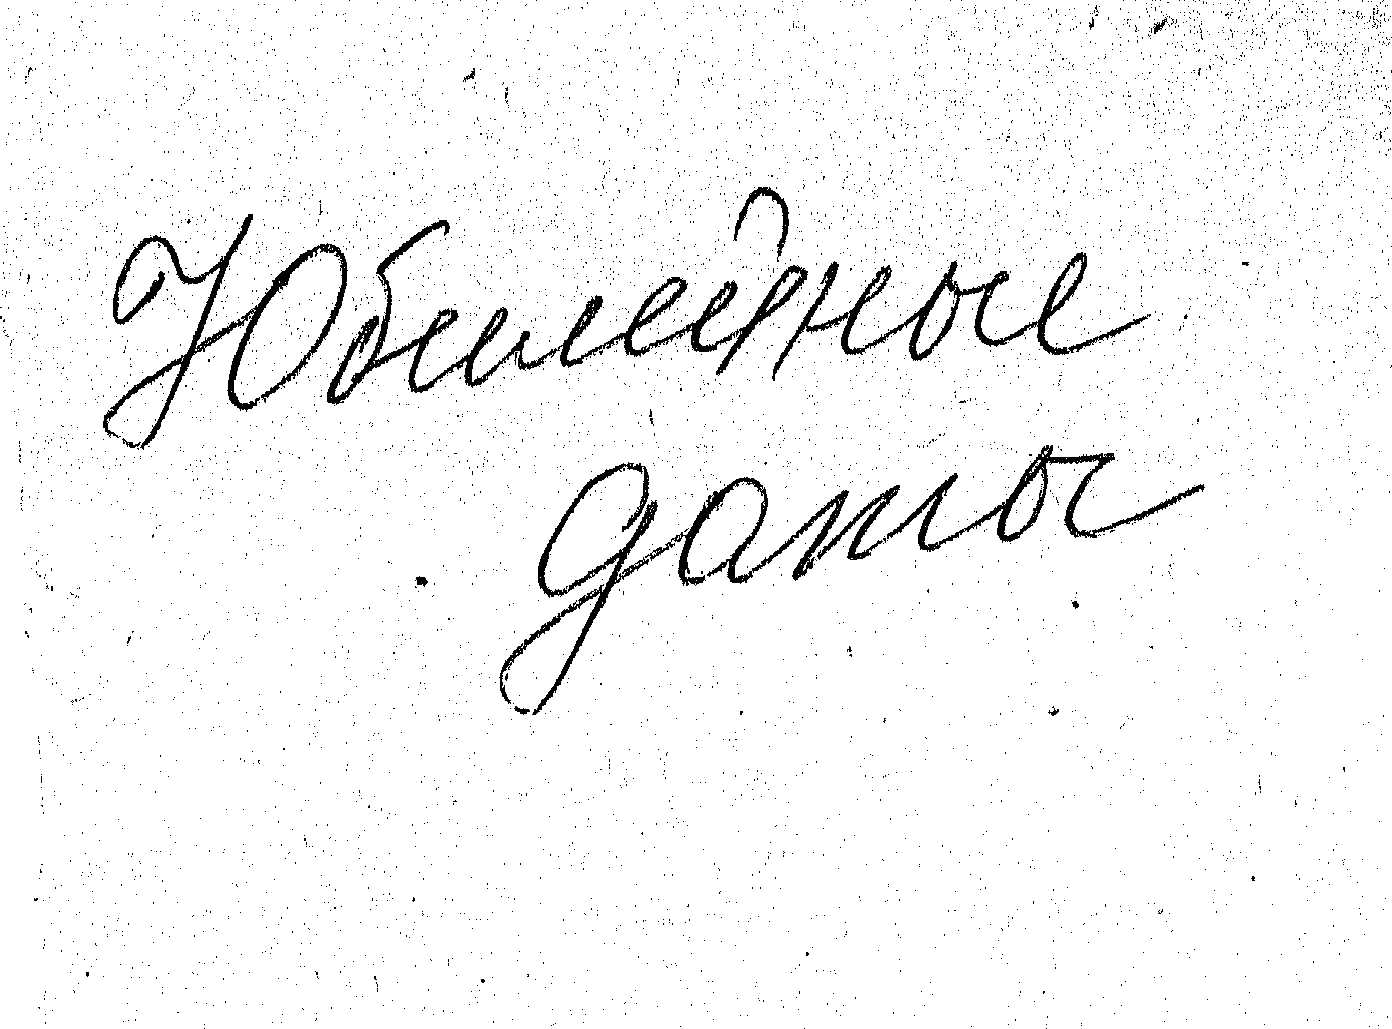 Юбилейные
даты